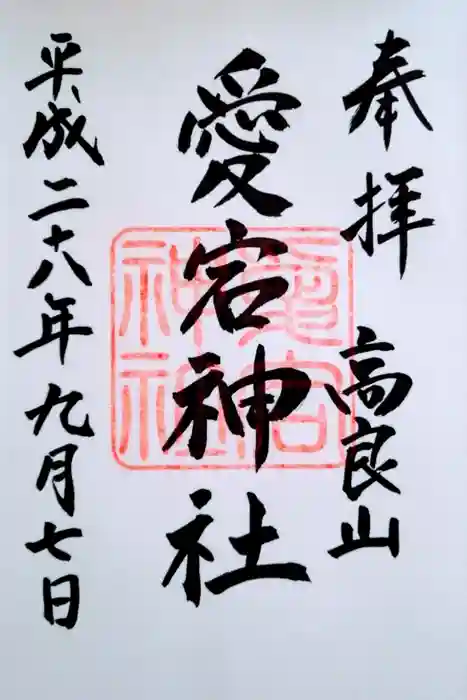 奉拝 高良山
愛宕神社
愛宕神社
平成二十八年九月七日